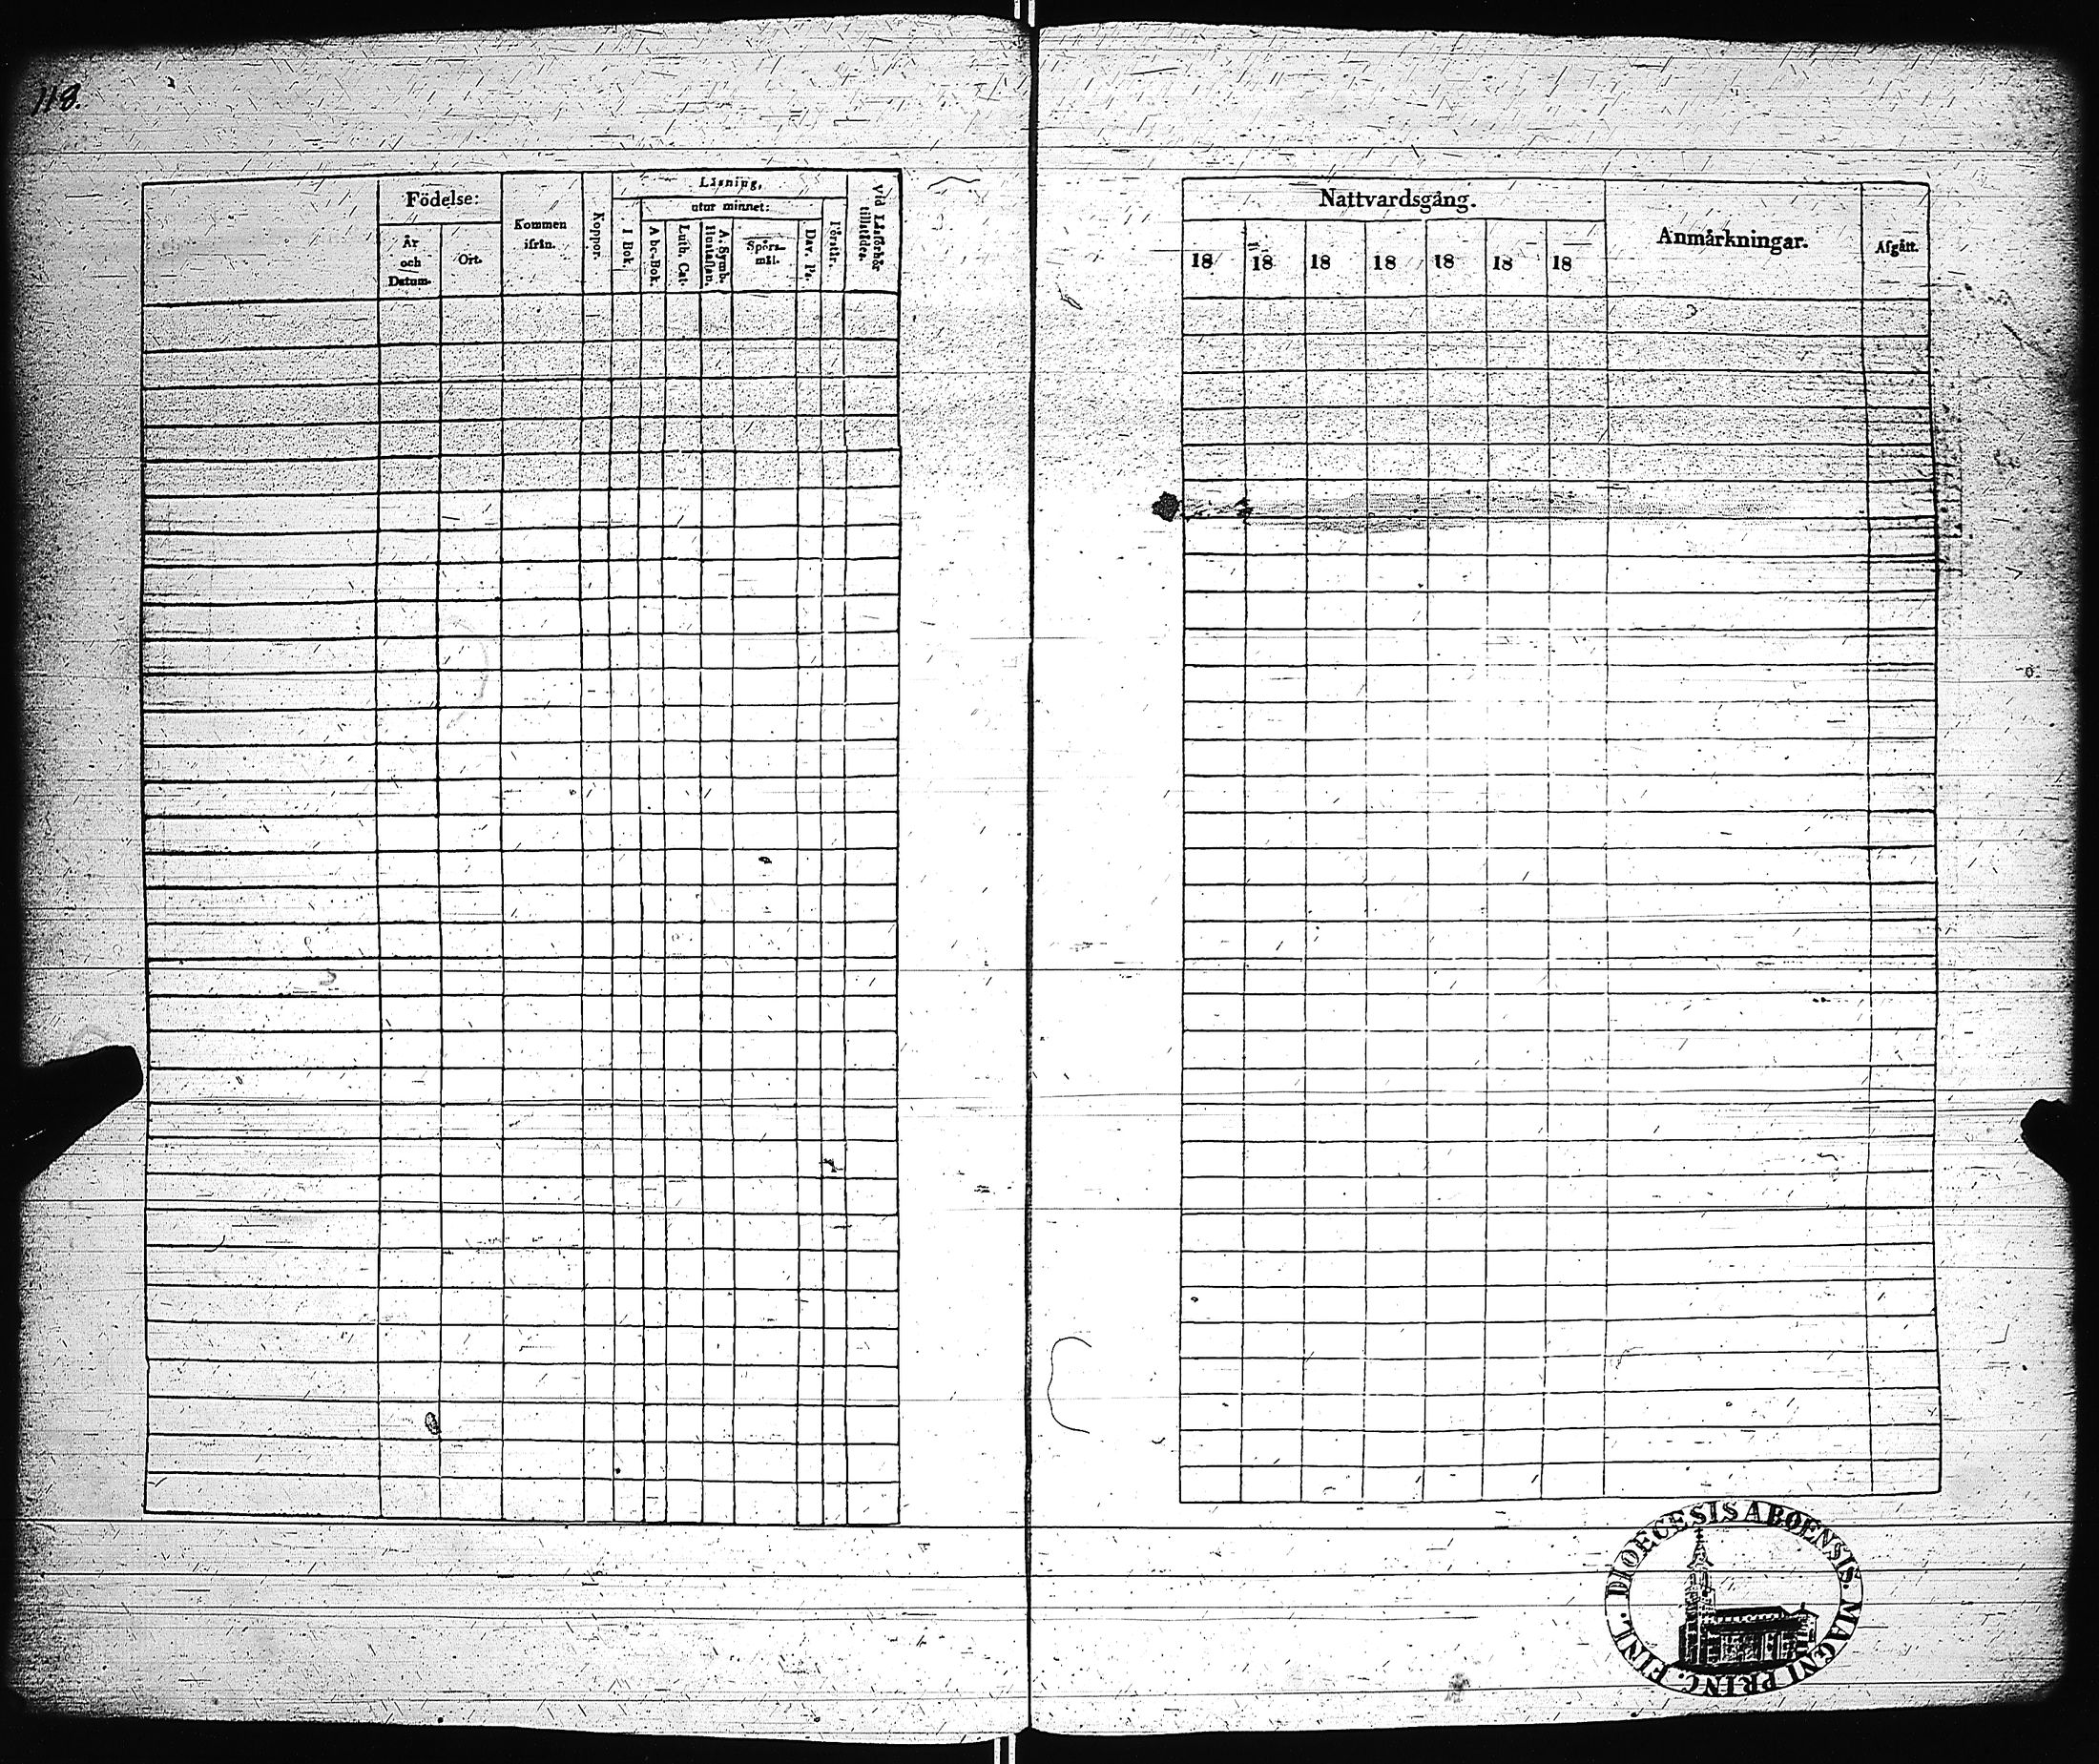 118.
Födelse:
År
och
Datum.
Ort.
Kommen
ifrån.
Koppor.
Läsning,
I Bok.
utur minnet:
Abc-Bok.
Luth. Cat.
A. Symb.
Hustaflan.
Spörs-
mål.
Dav. Ps.
Förstår.
Vid Läsförhör
tillstädes.
Nattvardsgång.
18 18 18 18 18 18 18
Anmärkningar.
Afgått.
DIOECESIS ABOENSIS. MAGNI PRINC. FINL.